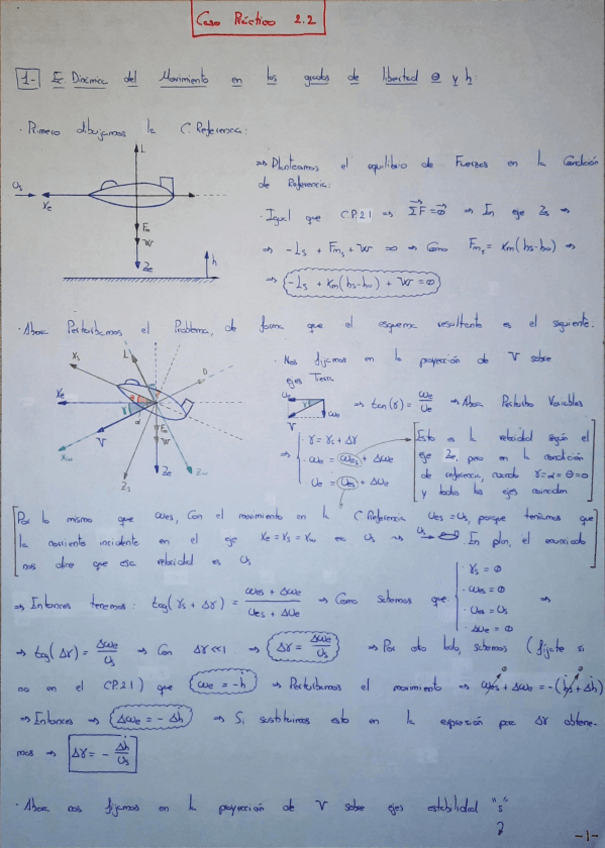 Caso Práctico 2.2
1- Ec. Dinámica del Movimiento en los grados de libertad θ y h:
· Primero dibujamos la C. Referencia:
L
us
xe
Fm
W
ze
h
⇒ Planteamos el equilibrio de Fuerzas en la Condición
de Referencia:
· Igual que C.P.2.1 ⇒ ΣF = 0 ⇒ En eje zs ⇒
⇒ -Ls + Fms + W = 0 ⇒ Como Fms = Km(hs-ho) ⇒
⇒ -Ls + Km(hs-ho) + W = 0
· Ahora Perturbamos el Problema, de forma que el esquema resultante es el siguiente:
xs
L
D
xe
γ
α
V
xw
Fm
W
zs
ze
zw
· Nos fijamos en la proyección de V sobre
ejes Tierra
ue
γ
V
we
⇒ tan(γ) = we/ue ⇒ Ahora Perturbo Variables
⇒ { · γ = γs + Δγ
· we = wes + Δwe
· ue = ues + Δue
[Esto es la velocidad según el
eje ze, pero en la condición
de referencia, cuando γ=α=θ=0
y todos los ejes coinciden]
[Por lo mismo que wes, Con el movimiento en la C. Referencia ues = us, porque teníamos que
la corriente incidente en el eje xe = xs = xw es us ⇒ us → . En plan, el enunciado
nos dice que esa velocidad es us]
⇒ Entonces tenemos: tag(γs + Δγ) = (wes + Δwe)/(ues + Δue) ⇒ Como sabemos que { · γs = 0
· wes = 0
· ues = us
· Δue = 0
⇒
⇒ tag(Δγ) = Δwe/us ⇒ Con Δγ<<1 ⇒ Δγ = Δwe/us ⇒ Por otro lado, sabemos (fíjate si
no en el C.P.2.1) que we = -ḣ ⇒ Perturbamos el movimiento ⇒ wes + Δwe = -(ḣs + Δḣ)
⇒ Entonces ⇒ Δwe = -Δḣ ⇒ Si sustituimos esto en la expresión para Δγ obtene-
mos ⇒ Δγ = - Δḣ/us
· Ahora nos fijamos en la proyección de V sobre ejes estabilidad "s"
-1-